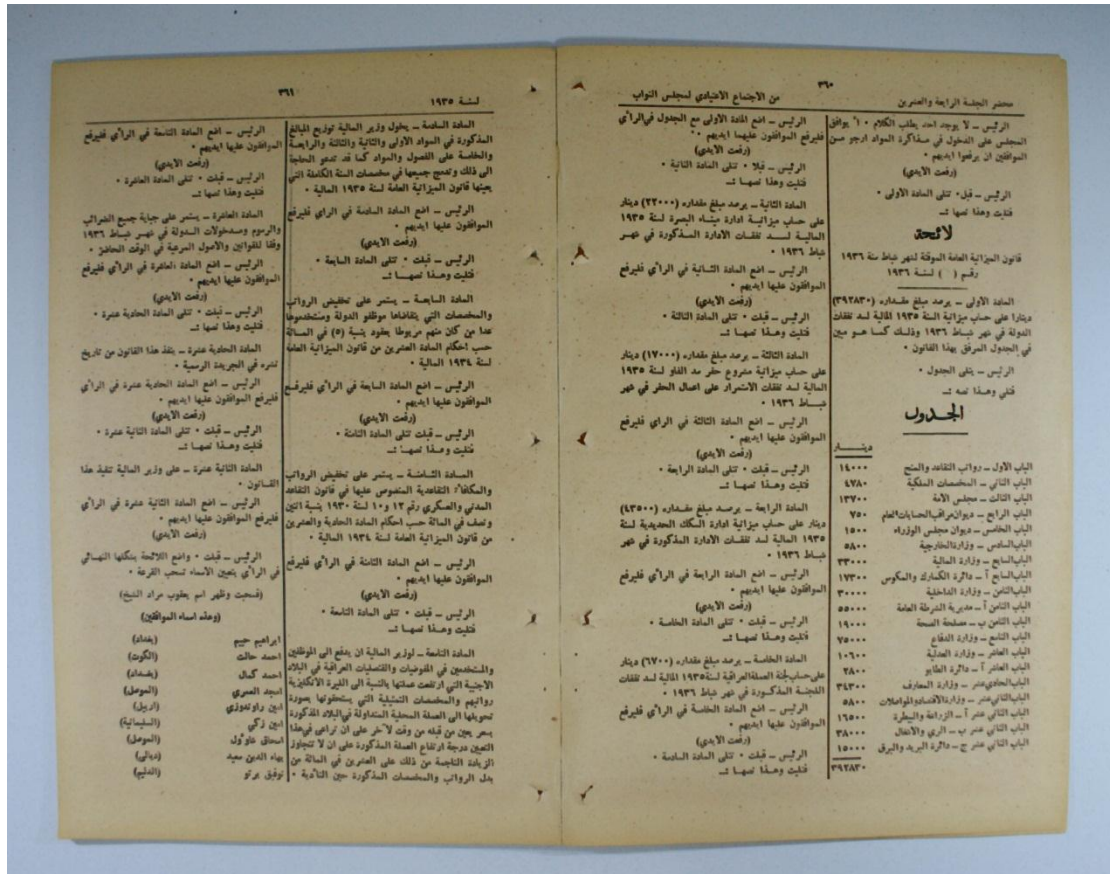 محضر الجلسة الرابعة والعشرين
٣٦٠
من الاجتماع الاعتيادي لمجلس النواب
الرئيس ــ لا يوجد احد يطلب الكلام ٠ يوافق
المجلس على الدخول في مذاكرة المواد ارجو من
الموافقين ان يرفعوا ايديهم ٠
(رفعت الأيدي)
الرئيس ــ قبل ٠ تتلى المادة الأولى ٠
فتليت وهذا نصها :ــ
لائحة
قانون الميزانية العامة الموقتة لشهر شباط سنة ١٩٣٦
رقم ( ) لسنة ١٩٣٦
المادة الأولى ــ يرصد مبلغ مقداره (٣٩٢٨٣٠)
دينارا على حساب ميزانية السنة ١٩٣٥ المالية لسد نفقات
الدولة في شهر شباط ١٩٣٦ وذلك كما هو مبين
في الجدول المرفق بهذا القانون ٠
الرئيس ــ يتلى الجدول ٠
فتلي وهذا نصه :ــ
الجدول
دينــار
الباب الأول ــ رواتب التقاعد والمنح ١٤٠٠٠
الباب الثاني ــ المخصصات الملكية ٤٧٨٠
الباب الثالث ــ مجلس الأمة ١٣٧٠٠
الباب الرابع ــ ديوان مراقب الحسابات العام ٧٥٠
الباب الخامس ــ ديوان مجلس الوزراء ١٥٠٠
الباب السادس ــ وزارة الخارجية ٥٨٠٠
الباب السابع ــ وزارة المالية ٣٣٠٠٠
الباب السابع آ ــ دائرة الكمارك والمكوس ١٧٣٠٠
الباب الثامن ــ وزارة الداخلية ٣٠٠٠٠
الباب الثامن آ ــ مديرية الشرطة العامة ٥٥٠٠٠
الباب الثامن ب ــ مصلحة الصحة ١٩٠٠٠
الباب التاسع ــ وزارة الدفاع ٧٥٠٠٠
الباب العاشر ــ وزارة العدلية ١٠٦٠٠
الباب العاشر آ ــ دائرة الطابو ٢٨٠٠
الباب الحادي عشر ــ وزارة المعارف ٣٤٣٠٠
الباب الثاني عشر ــ وزارة الاقتصاد والمواصلات ٥٨٠٠
الباب الثاني عشر آ ــ الزراعة والبيطرة ١٦٥٠٠
الباب الثاني عشر ب ــ الري والاشغال ٣٨٠٠٠
الباب الثاني عشر ج ــ دائرة البريد والبرق ١٥٠٠٠
٣٩٢٨٣٠
الرئيس ــ اضع المادة الاولى مع الجدول في الرأي
فليرفع الموافقون عليهما ايديهم ٠
(رفعت الأيدي)
الرئيس ــ قبلا ٠ تتلى المادة الثانية ٠
فتليت وهذا نصها :ــ
المادة الثانية ــ يرصد مبلغ مقداره (٢٢٠٠٠) دينار
على حساب ميزانية ادارة ميناء البصرة لسنة ١٩٣٥
المالية لسد نفقات الادارة المذكورة في شهر
شباط ١٩٣٦ ٠
الرئيس ــ اضع المادة الثانية في الرأي فليرفع
الموافقون عليها ايديهم ٠
(رفعت الأيدي)
الرئيس ــ قبلت ٠ تتلى المادة الثالثة ٠
فتليت وهذا نصها :ــ
المادة الثالثة ــ يرصد مبلغ مقداره (١٧٠٠٠) دينار
على حساب ميزانية مشروع حفر سد الفاو لسنة ١٩٣٥
المالية لسد نفقات الاستمرار على اعمال الحفر في شهر
شباط ١٩٣٦ ٠
الرئيس ــ اضع المادة الثالثة في الرأي فليرفع
الموافقون عليها ايديهم ٠
(رفعت الأيدي)
الرئيس ــ قبلت ٠ تتلى المادة الرابعة ٠
فتليت وهذا نصها :ــ
المادة الرابعة ــ يرصد مبلغ مقداره (٤٣٥٠٠)
دينار على حساب ميزانية ادارة السكك الحديدية لسنة
١٩٣٥ المالية لسد نفقات الادارة المذكورة في شهر
شباط ١٩٣٦ ٠
الرئيس ــ اضع المادة الرابعة في الرأي فليرفع
الموافقون عليها ايديهم ٠
(رفعت الأيدي)
الرئيس ــ قبلت ٠ تتلى المادة الخامسة ٠
فتليت وهذا نصها :ــ
المادة الخامسة ــ يرصد مبلغ مقداره (٦٧٠٠) دينار
على حساب لجنة العملة العراقية لسنة ١٩٣٥ المالية لسد نفقات
اللجنة المذكورة في شهر شباط ١٩٣٦ ٠
الرئيس ــ اضع المادة الخامسة في الرأي فليرفع
الموافقون عليها ايديهم ٠
(رفعت الأيدي)
الرئيس ــ قبلت ٠ تتلى المادة السادسة ٠
فتليت وهذا نصها :ــ
٣٦١
لسنة ١٩٣٥
المادة السادسة ــ يخول وزير المالية توزيع المبالغ
المذكورة في المواد الاولى والثانية والثالثة والرابعة
والخامسة على الفصول والمواد كما قد تدعو الحاجة
الى ذلك وتدمج جميعها في مخصصات السنة الكاملة التي
يعينها قانون الميزانية العامة لسنة ١٩٣٥ المالية ٠
الرئيس ــ اضع المادة السادسة في الراي فليرفع
الموافقون عليها ايديهم ٠
(رفعت الأيدي)
الرئيس ــ قبلت ٠ تتلى المادة السابعة ٠
فتليت وهذا نصها :ــ
المادة السابعة ــ يستمر على تخفيض الرواتب
والمخصصات التي يتقاضاها موظفو الدولة ومستخدموها
عدا من كان منهم مربوطا بعقود بنسبة (٥) في المائة
حسب احكام المادة العشرين من قانون الميزانية العامة
لسنة ١٩٣٤ المالية ٠
الرئيس ــ اضع المادة السابعة في الرأي فليرفع
الموافقون عليها ايديهم ٠
(رفعت الأيدي)
الرئيس ــ قبلت تتلى المادة الثامنة ٠
فتليت وهذا نصها :ــ
المادة الثامنة ــ يستمر على تخفيض الرواتب
والمكافآت التقاعدية المنصوص عليها في قانون التقاعد
المدني والعسكري رقم ١٢ و١٠ لسنة ١٩٣٠ بنسبة اثنين
ونصف في المائة حسب احكام المادة الحادية والعشرين
من قانون الميزانية العامة لسنة ١٩٣٤ المالية ٠
الرئيس ــ اضع المادة الثامنة في الرأي فليرفع
الموافقون عليها ايديهم ٠
(رفعت الأيدي)
الرئيس ــ قبلت ٠ تتلى المادة التاسعة ٠
فتليت وهذا نصها :ــ
المادة التاسعة ــ لوزير المالية ان يدفع الى الموظفين
والمستخدمين في المفوضيات والقنصليات العراقية في البلاد
الأجنبية التي ارتفعت عملتها بالنسبة الى الليرة الانكليزية
رواتبهم والمخصصات التمثيلية التي يستحقونها بصورة
تحويلها الى العملة المحلية المتداولة في البلاد المذكورة
بسعر يعين من قبله من وقت لآخر على ان تراعى في هذا
التعيين درجة ارتفاع العملة المذكورة على ان لا تتجاوز
الزيادة الناجمة من ذلك على العشرين في المائة من
بدل الرواتب والمخصصات المذكورة حين التأدية ٠
الرئيس ــ اضع المادة التاسعة في الرأي فليرفع
الموافقون عليها ايديهم ٠
(رفعت الأيدي)
الرئيس ــ قبلت ٠ تتلى المادة العاشرة ٠
فتليت وهذا نصها :ــ
المادة العاشرة ــ يستمر على جباية جميع الضرائب
والرسوم ومدخولات الدولة في شهر شباط ١٩٣٦
وفقا للقوانين والأصول المرعية في الوقت الحاضر ٠
الرئيس ــ اضع المادة العاشرة في الرأي فليرفع
الموافقون عليها ايديهم ٠
(رفعت الأيدي)
الرئيس ــ قبلت ٠ تتلى المادة الحادية عشرة ٠
فتليت وهذا نصها :ــ
المادة الحادية عشرة ــ ينفذ هذا القانون من تاريخ
نشره في الجريدة الرسمية ٠
الرئيس ــ اضع المادة الحادية عشرة في الرأي
فليرفع الموافقون عليها ايديهم ٠
(رفعت الأيدي)
الرئيس ــ قبلت ٠ تتلى المادة الثانية عشرة ٠
فتليت وهذا نصها :ــ
المادة الثانية عشرة ــ على وزير المالية تنفيذ هذا
القـانون ٠
الرئيس ــ اضع المادة الثانية عشرة في الرأي
فليرفع الموافقون عليها ايديهم ٠
(رفعت الأيدي)
الرئيس ــ قبلت ٠ واضع اللائحة بشكلها النهائي
في الرأي بتعيين الأسماء تسحب القرعة ٠
(فسحبت وظهر اسم يعقوب مراد الشيخ)
(وهذه اسماء الموافقين)
ابراهيم حييم (بغداد)
احمد حالت (الكوت)
احمد كمال (بغداد)
امجد العمري (الموصل)
امين راوندوزي (اربيل)
امين زكي (السليمانية)
اسحاق (الموصل)
بهاء الدين سعيد (ديالى)
توفيق برتو (الدليم)